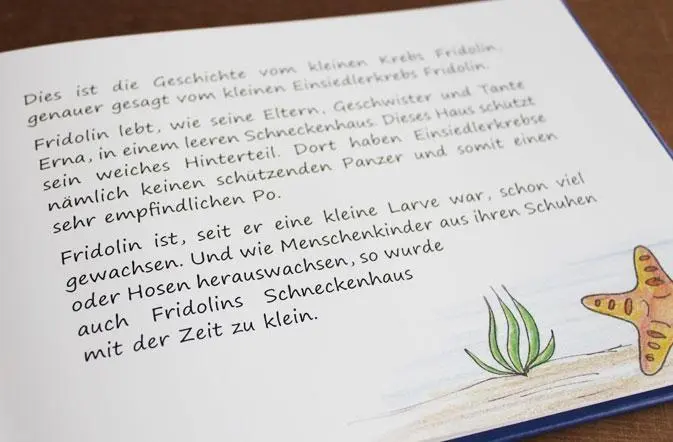 Dies ist die Geschichte vom kleinen Krebs Fridolin,
genauer gesagt vom kleinen Einsiedlerkrebs Fridolin.
Fridolin lebt, wie seine Eltern, Geschwister und Tante
Erna, in einem leeren Schneckenhaus. Dieses Haus schützt
sein weiches Hinterteil. Dort haben Einsiedlerkrebse
nämlich keinen schützenden Panzer und somit einen
sehr empfindlichen Po.
Fridolin ist, seit er eine kleine Larve war, schon viel
gewachsen. Und wie Menschenkinder aus ihren Schuhen
oder Hosen herauswachsen, so wurde
auch Fridolins Schneckenhaus
mit der Zeit zu klein.